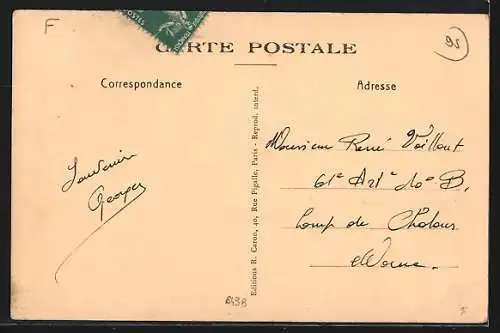 F
POSTES
95
CARTE POSTALE
Correspondance
Adresse
Souvenir
Georges
Editions R. Caron, 40, Rue Pigalle, Paris - Reprod. interd.
Monsieur René Vaillant
61e Art 10e B.
Camp de Chalons
Marne.